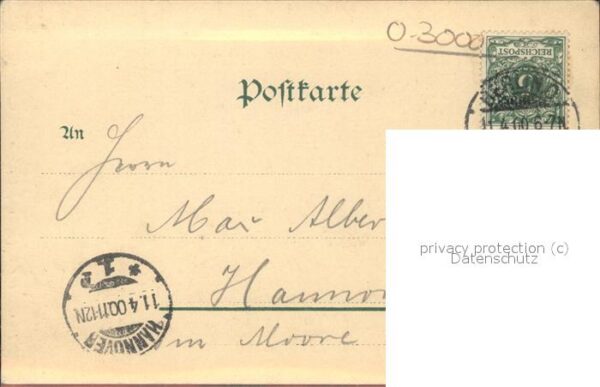 O-3000
REICHSPOST
5
Postkarte
11.4.00.6-7N
An
Herrn
Max Alber
Hanno
im Moore
1.
11.4.00.11-12N
HANNOVER
privacy protection (c)
Datenschutz